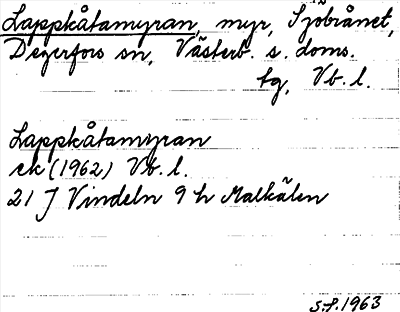 Lappkåtamyran, myr, Sjöbrånet,
Degerfors sn, Västerb. s. doms.
tg, Vb. l.
Lappkåtamyran
ek (1962) Vb. l.
21 J Vindeln 9 h Malkälen
S.P. 1963